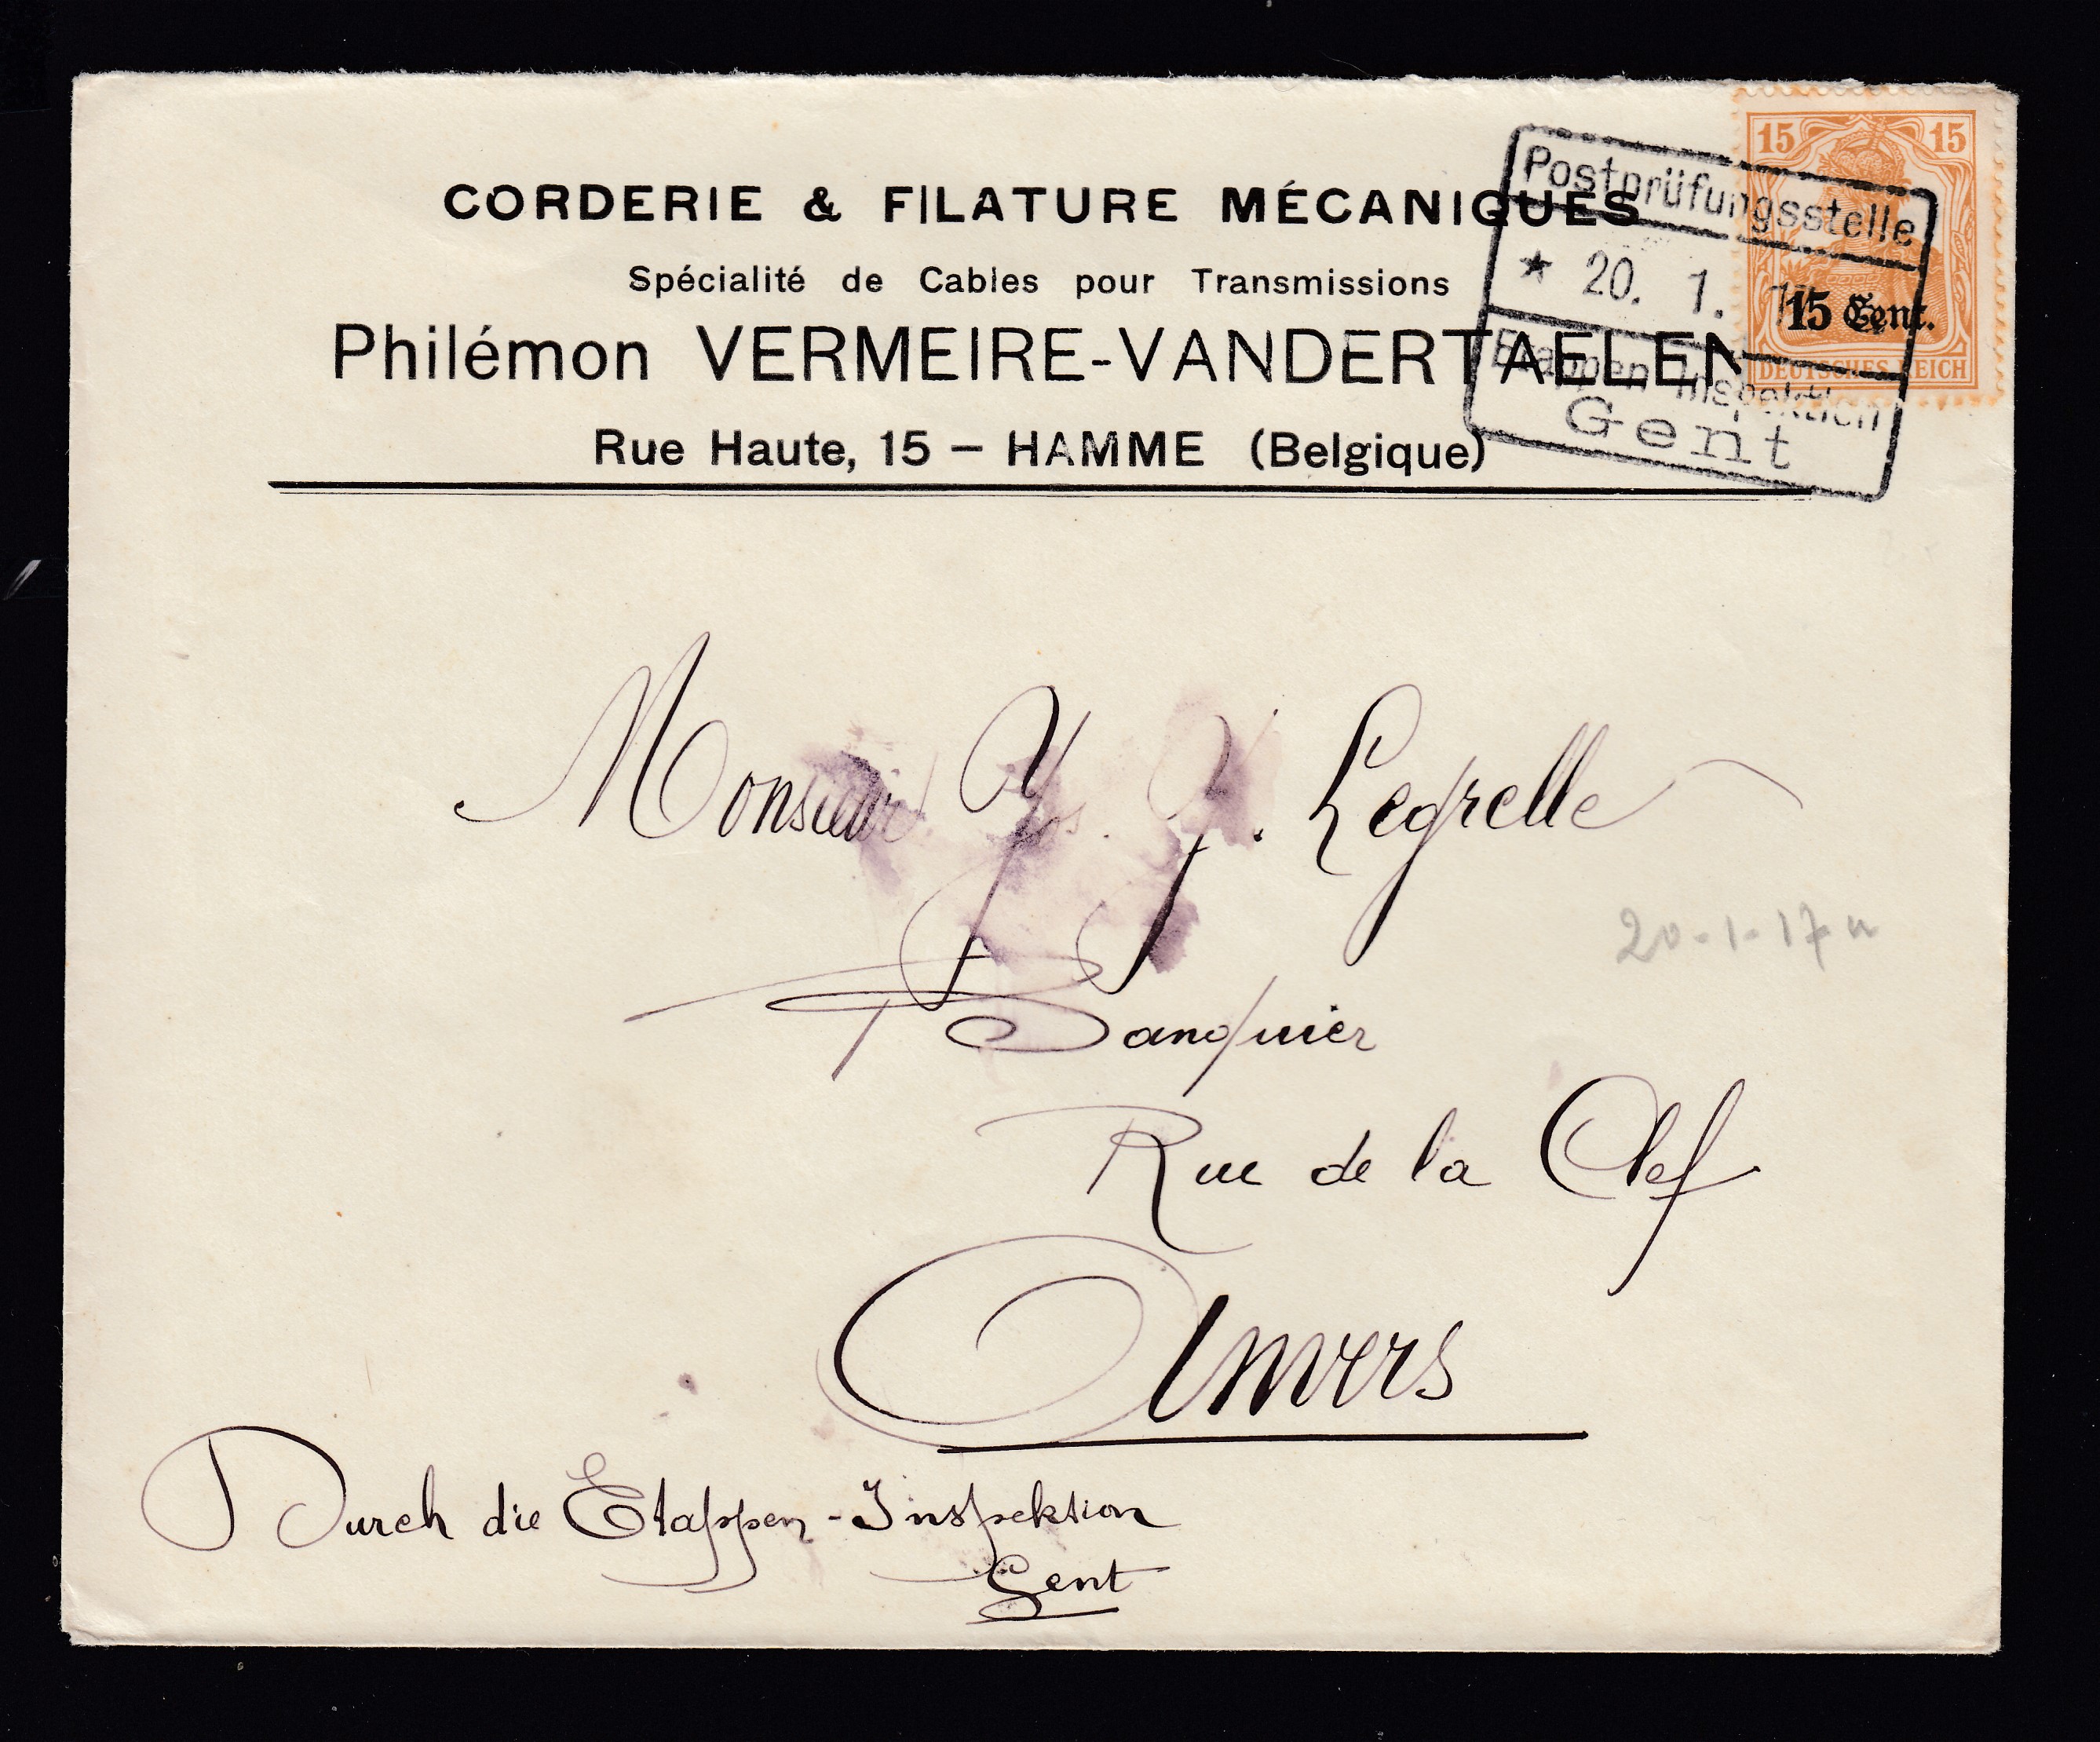 CORDERIE & FILATURE MÉCANIQUES
Spécialité de Cables pour Transmissions
Philémon VERMEIRE-VANDERTAELEN
Rue Haute, 15 – HAMME (Belgique)
15 15
15 Cent.
DEUTSCHES REICH
Postprüfungsstelle
* 20. 1.
Etappen-Inspektion
Gent
Monsieur J. Legrelle
20-1-17
Banquier
Rue de la Clef
Anvers
Durch die Etappen-Inspektion
Gent